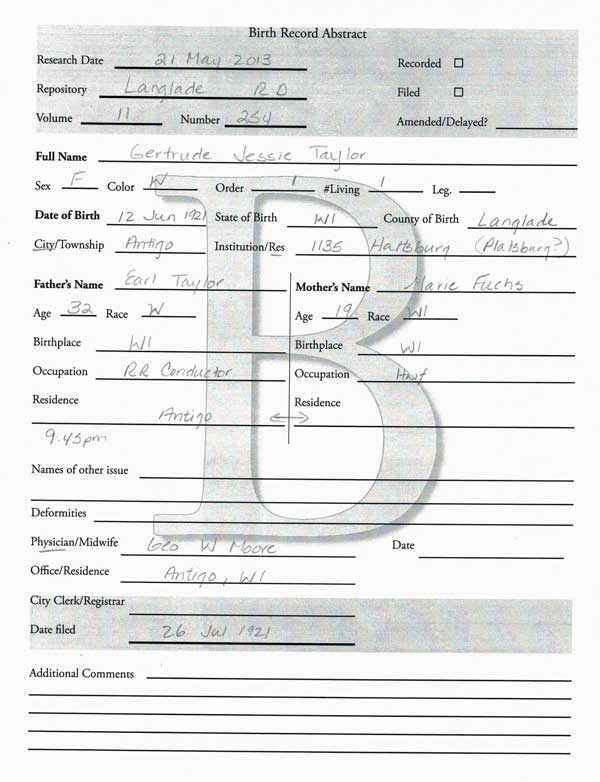 Birth Record Abstract
Research Date 21 May 2013 Recorded ☐
Repository Langlade R D Filed ☐
Volume 11 Number 254 Amended/Delayed?
Full Name Gertrude Jessie Taylor
Sex F Color W Order 1 #Living 1 Leg.
Date of Birth 12 Jun 1921 State of Birth WI County of Birth Langlade
City/Township Antigo Institution/Res 1135 Hattsburg (Platsburg?)
Father's Name Earl Taylor Mother's Name Marie Fuchs
Age 32 Race W Age 19 Race WI
Birthplace WI Birthplace WI
Occupation RR Conductor Occupation Hwf
Residence Residence
Antigo ↔
9:45pm
Names of other issue
Deformities
Physician/Midwife Geo W Moore Date
Office/Residence Antigo, WI
City Clerk/Registrar
Date filed 26 Jul 1921
Additional Comments
B